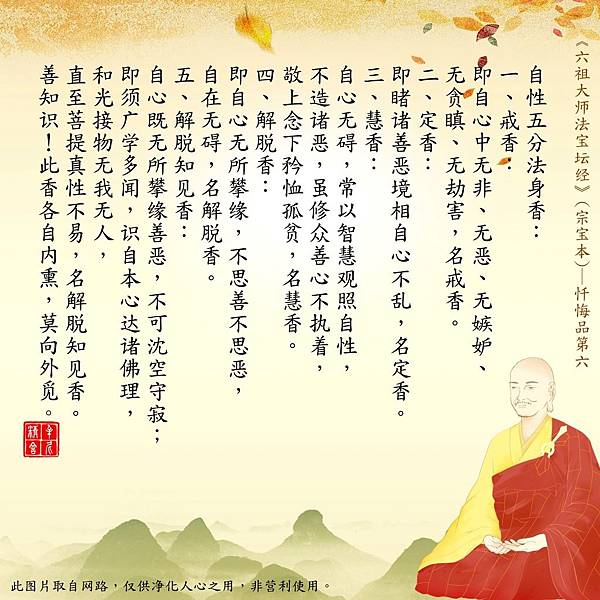 《六祖大师法宝坛经》（宗宝本）—忏悔品第六
自性五分法身香：
一、戒香：
即自心中无非、无恶、无嫉妒、
无贪瞋、无劫害，名戒香。
二、定香：
即睹诸善恶境相自心不乱，名定香。
三、慧香：
自心无碍，常以智慧观照自性，
不造诸恶，虽修众善心不执着，
敬上念下矜恤孤贫，名慧香。
四、解脱香：
即自心无所攀缘，不思善不思恶，
自在无碍，名解脱香。
五、解脱知见香：
自心既无所攀缘善恶，不可沈空守寂；
即须广学多闻，识自本心达诸佛理，
和光接物无我无人，
直至菩提真性不易，名解脱知见香。
善知识！此香各自内熏，莫向外觅。
此图片取自网路，仅供净化人心之用，非营利使用。